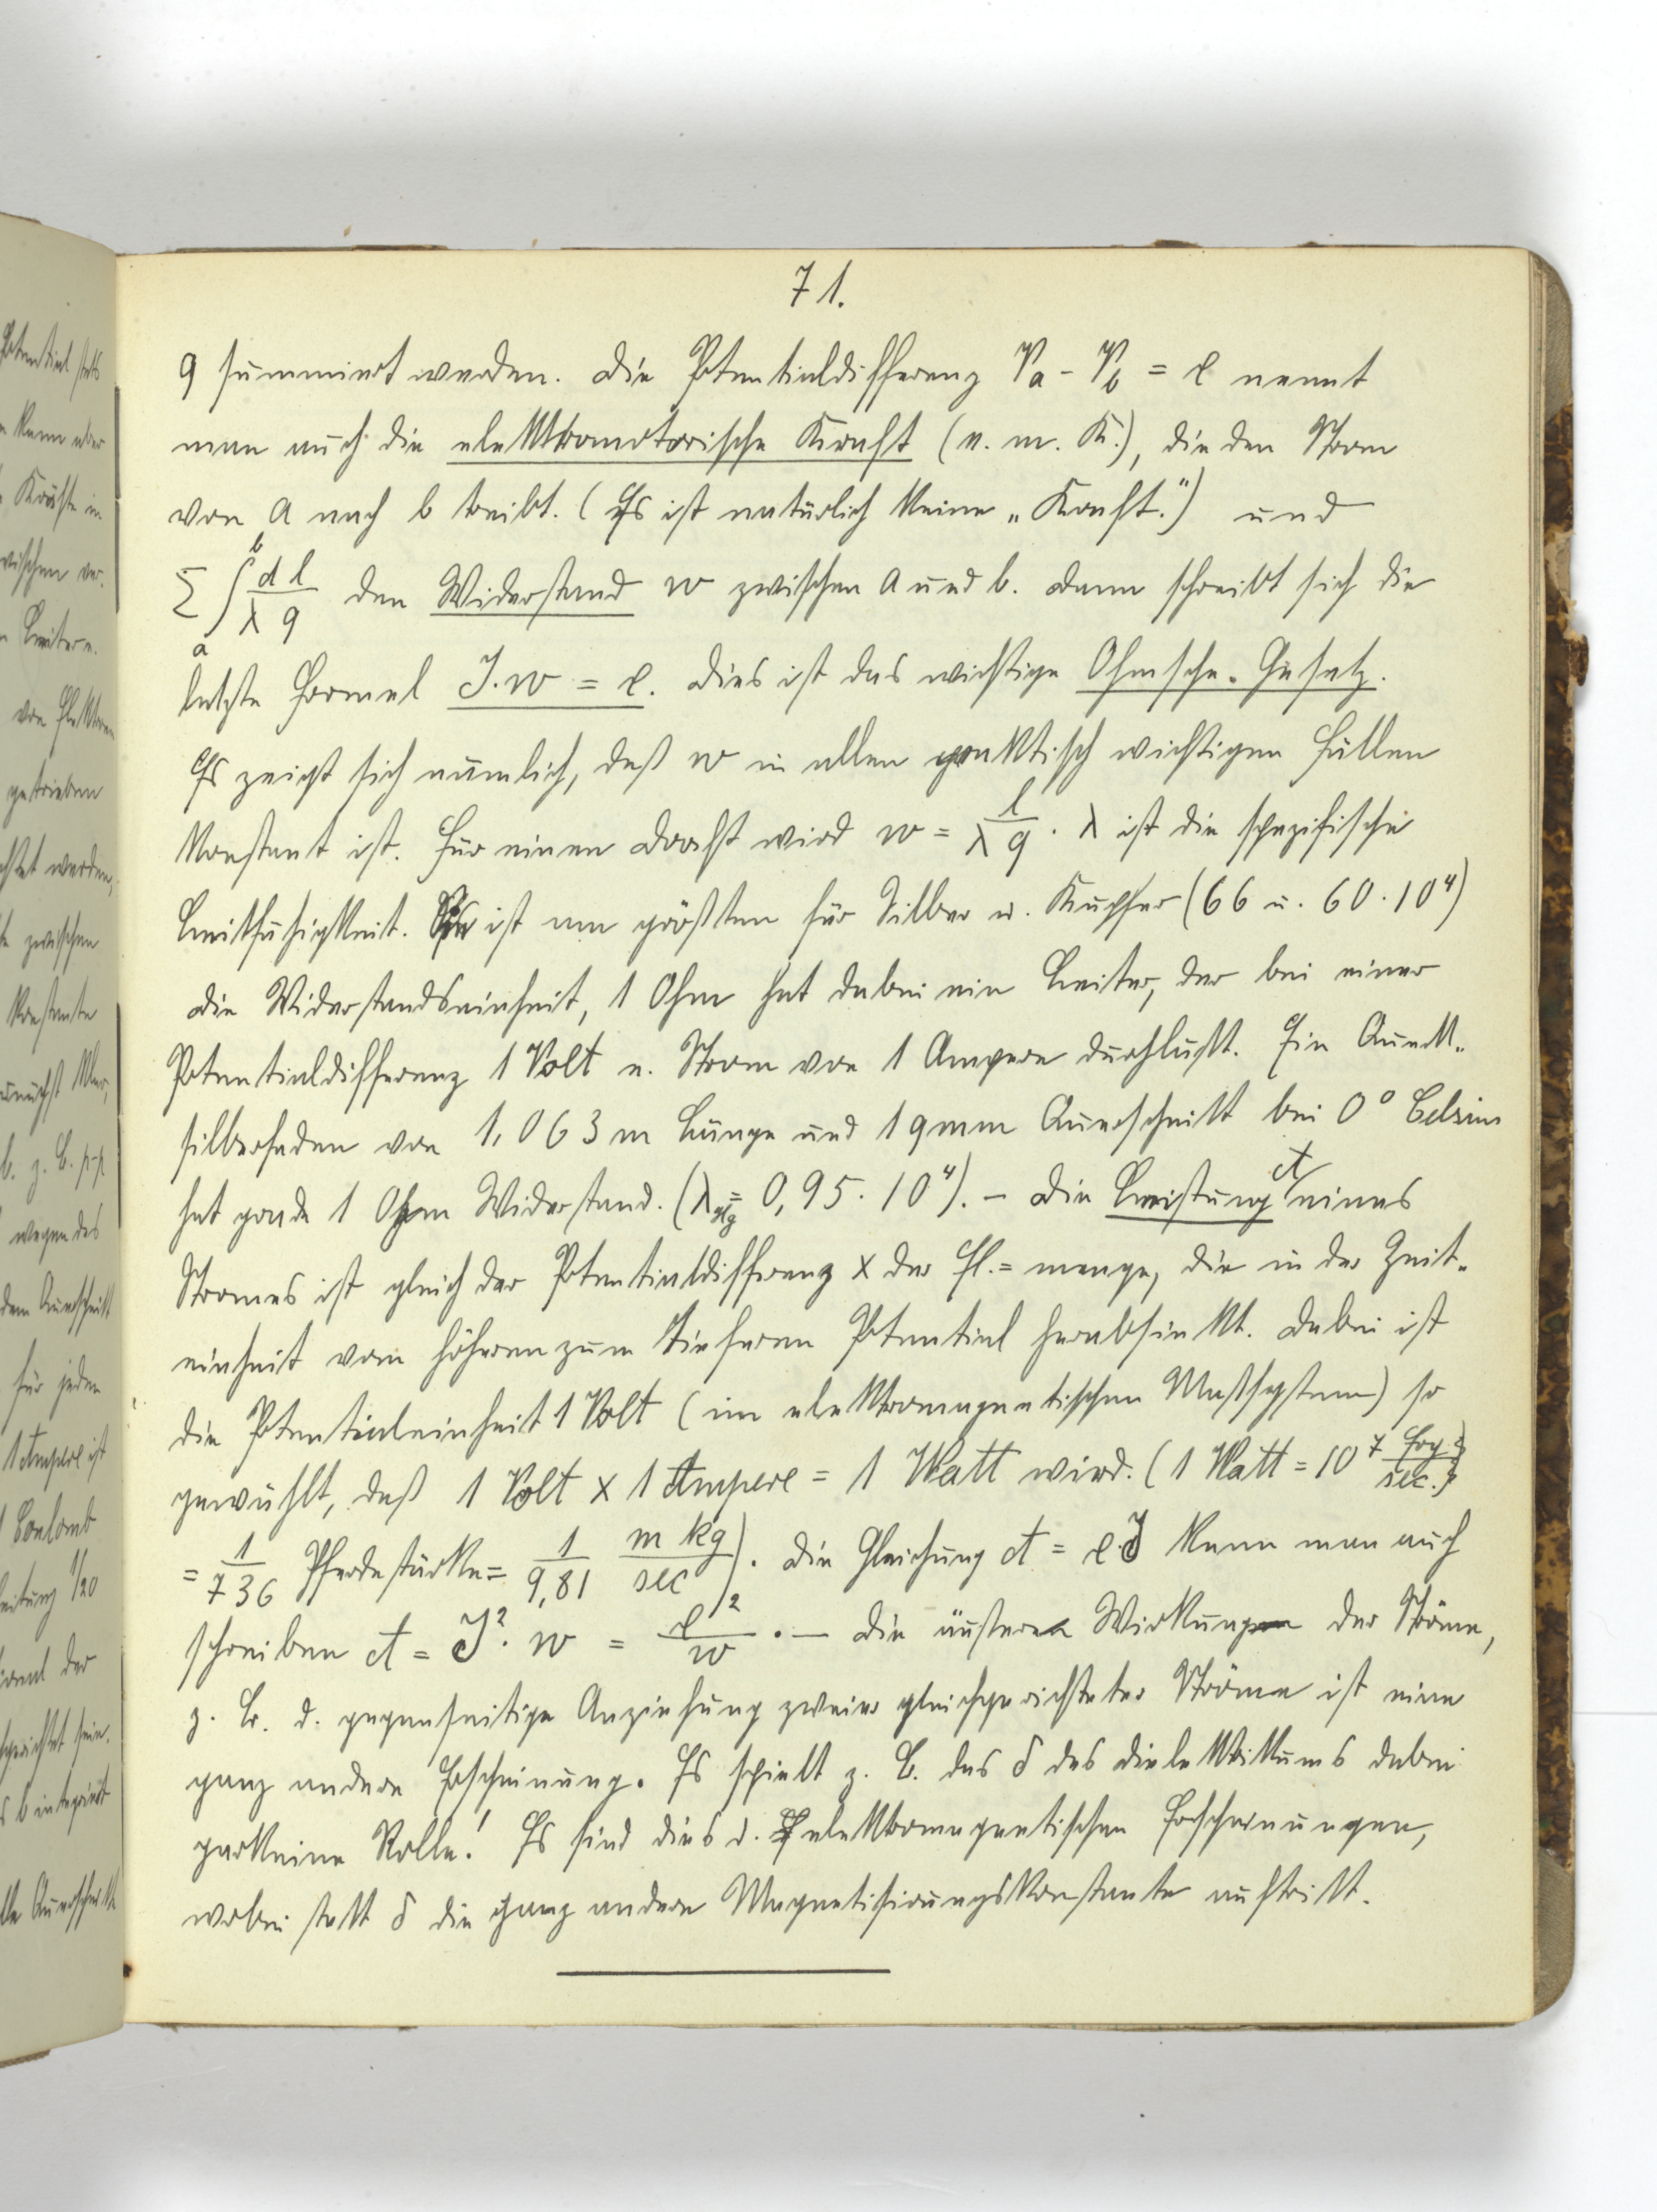 71.
q summiert werden. Die Potentialdifferenz Va - Vb = e nennt
man auch die elektromotorische Kraft (e. m. K.), die den Strom
von a nach b treibt. (Es ist natürlich keine „Kraft.") und
Σ ∫ₐᵇ dl/λq den Widerstand w zwischen a und b. Dann schreibt sich die
letzte Formel J.w = e. Dies ist das wichtige Ohmsche-Gesetz.
Es zeigt sich nämlich, daß w in allen praktisch wichtigen Fällen
konstant ist. Für einen Draht wird w = l/λq. λ ist die spezifische
Leitfähigkeit. Sie ist am größten für Silber u. Kupfer (66 u. 60 . 10⁴)
Die Widerstandseinheit, 1 Ohm hat dabei ein Leiter, der bei einer
Potentialdifferenz 1 Volt e. Strom von 1 Ampere durchläßt. Ein Queck-
silberfaden von 1,063 m Länge und 1 qmm Querschnitt bei 0° Celsius
hat grade 1 Ohm Widerstand. (λHg = 0,95 . 10⁴). – Die Leistung A eines
Stromes ist gleich der Potentialdifferenz x der El.= menge, die in der Zeit-
einheit vom höheren zum tieferen Potential herabsinkt. Dabei ist
die Potentialeinheit 1 Volt (im elektromagnetischen Maßsystem) so
gewählt, daß 1 Volt x 1 Ampere = 1 Watt wird. (1 Watt = 10⁷ Erg/sec.
= 1/736 Pferdestärke = 1/9,81 m kg/sec). Die Gleichung A = e.J kann man auch
schreiben A = J². w = e²/w. – Die äußeren Wirkungen der Ströme,
z. B. d. gegenseitige Anziehung zweier gleichgerichteter Ströme ist eine
ganz andere Erscheinung. Es spielt z. B. das δ des Dielektrikums dabei
garkeine Rolle! Es sind dies d. elektromagnetischen Erscheinungen,
wobei statt δ die ganz andere Magnetisierungskonstante auftritt.